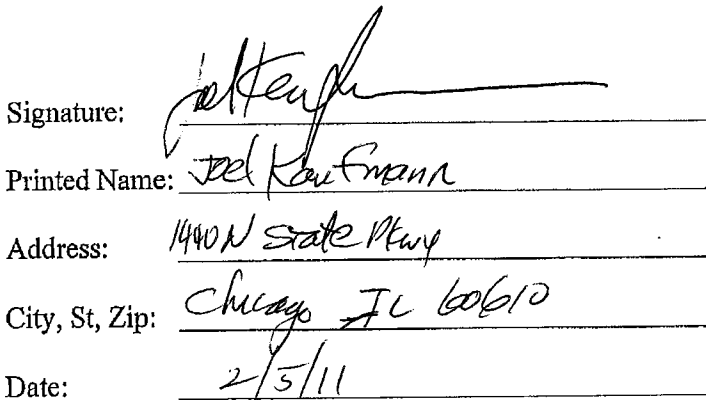 Signature: Joel Kaufmann
Printed Name: Joel Kaufmann
Address: 1440 N State Pkwy
City, St, Zip: Chicago IL 60610
Date: 2/5/11